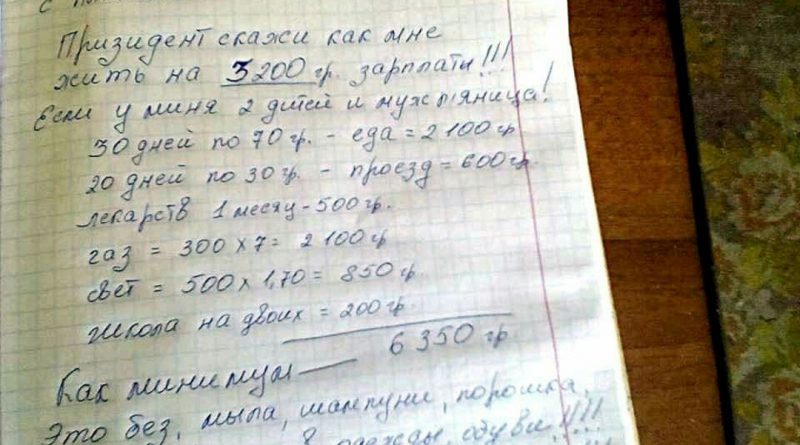 с
Призидент скажи как мне
жить на 3200 гр. зарплаты!!!
Если у миня 2 дитей и муж пяница!
30 дней по 70 гр. - еда = 2100 гр
20 дней по 30 гр. - проезд = 600 гр.
лекарств 1 месяц - 500 гр.
газ = 300 х 7 = 2100 гр
свет = 500 х 1,70 = 850 гр.
школа на двоих = 200 гр.
6350 гр
Как минимум —
Это без, мыла, шампуни, порошка,
одежды, обуви!!!!